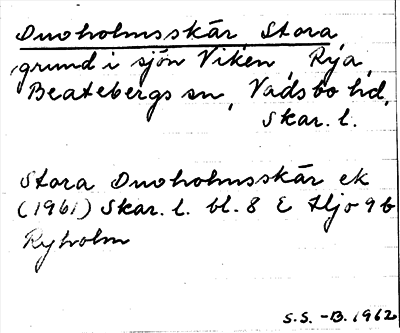 Duvholmsskär, Stora,
grund i sjön Viken, Rya,
Beatebergs sn, Vadsbo hd,
Skar. l.
Stora Duvholmsskär ek
(1961) Skar. l. bl. 8 E Hjo 9b
Ryholm
S.S. -B. 1962